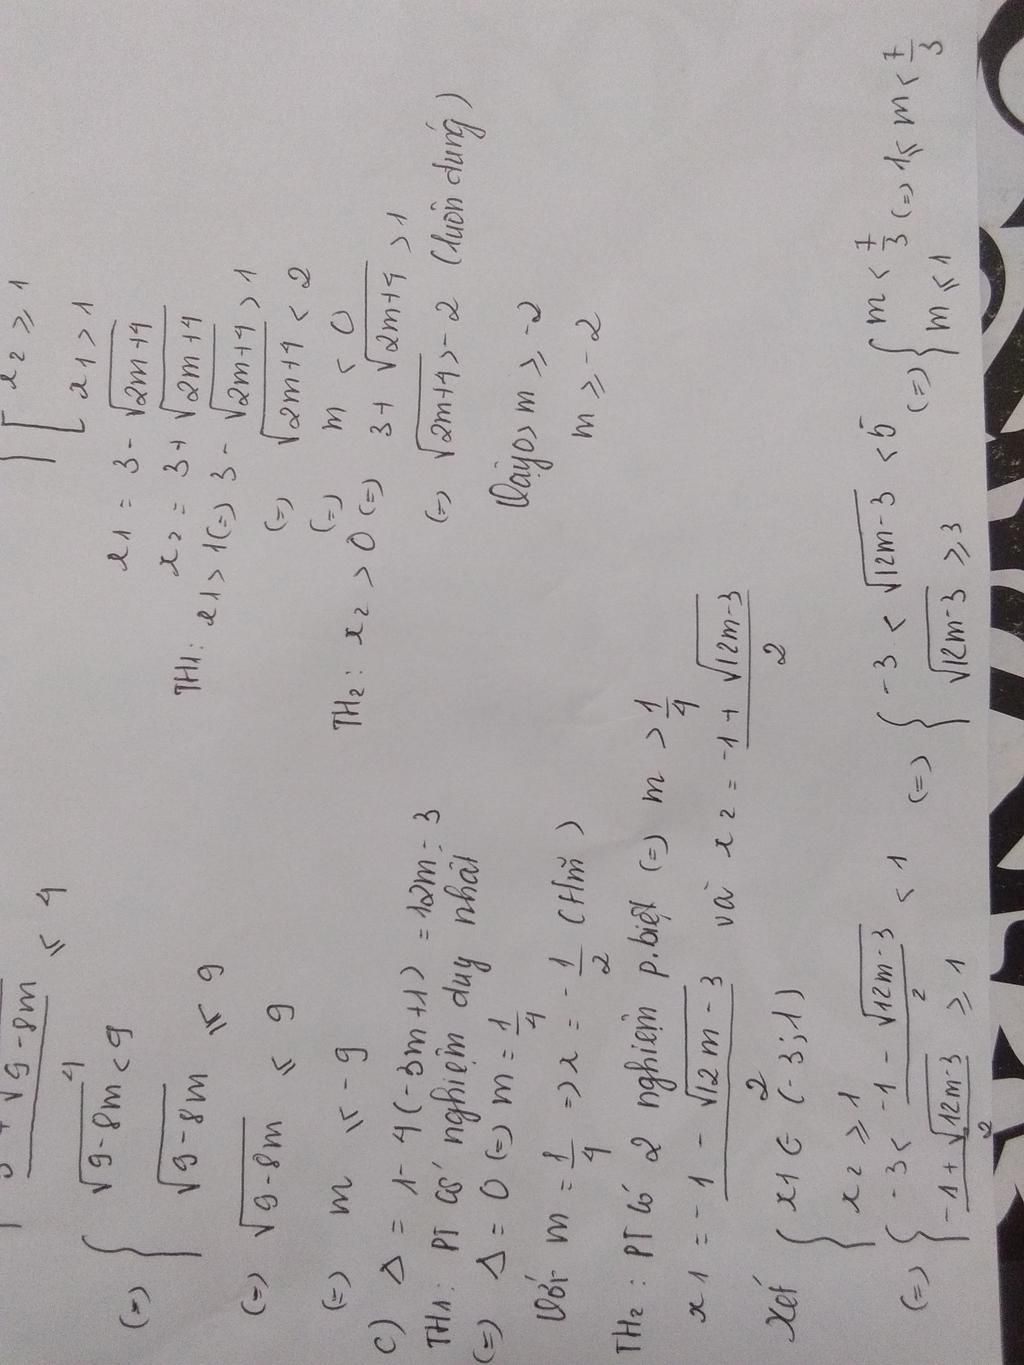 3 + √9-8m ≤ 4
4
(=) { √9-8m < 9
√9-8m ≤ 9
(=) √9-8m ≤ 9
(=) m ≤ -9
c) Δ = 1 - 4(-3m+1) = 12m-3
TH1: PT có nghiệm duy nhất
(=) Δ = 0 (=) m = 1/4
Với m = 1/4 => x = -1/2 (Hm)
TH2: PT có 2 nghiệm p.biệt (=) m > 1/4
x1 = (-1 - √12m-3)/2 và x2 = (-1 + √12m-3)/2
Xét { x1 ∈ (-3;1)
x2 ≥ 1
(=) { -3 < (-1 - √12m-3)/2 < 1 (=) { -3 < √12m-3 < 5 (=) { m < 7/3 (=) 1 ≤ m < 7/3
(-1 + √12m-3)/2 ≥ 1 √12m-3 ≥ 3 m ≤ 1
{ [ x2 ≥ 1
x1 > 1
x1 = 3 - √2m+4
x2 = 3 + √2m+4
TH1: x1 > 1 (=) 3 - √2m+4 > 1
(=) √2m+4 < 2
(=) m < 0
TH2: x2 > 0 (=) 3 + √2m+4 > 1
(=) √2m+4 > -2 (luôn đúng)
Vậy 0 > m ≥ -2
m ≥ -2